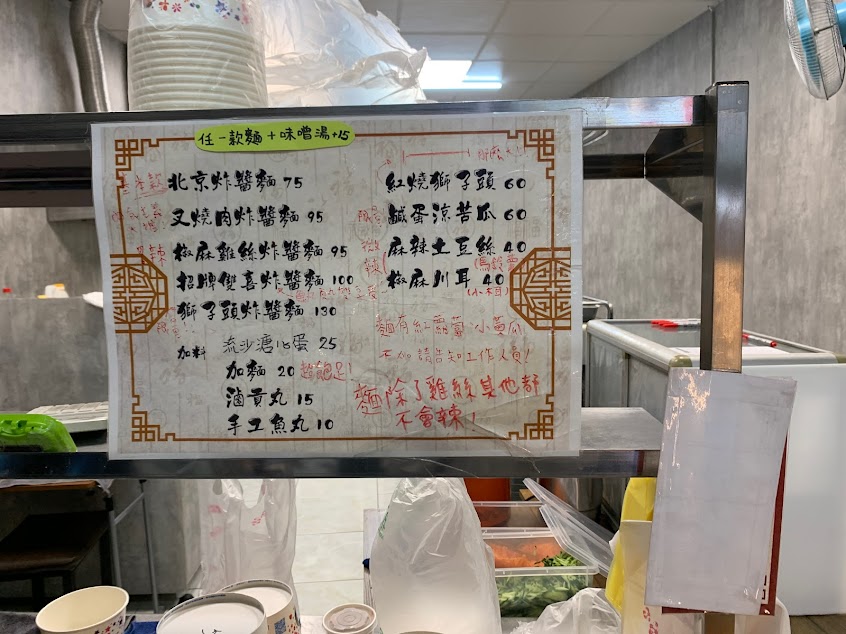 任一款麵+味噌湯+15
北京炸醬麵 75
叉燒肉炸醬麵 95
椒麻雞絲炸醬麵 95
招牌雙喜炸醬麵 100
獅子頭炸醬麵 130
加料 流沙溏心蛋 25
加麵 20 超飽足!
滷貢丸 15
手工魚丸 10
紅燒獅子頭 60
鹹蛋涼苦瓜 60
微辣
麻辣土豆絲 40
(馬鈴薯)
椒麻川耳 40
(木耳)
麵有紅蘿蔔、小黃瓜
不加請告知工作人員!
麵除了雞絲其他都
不會辣!